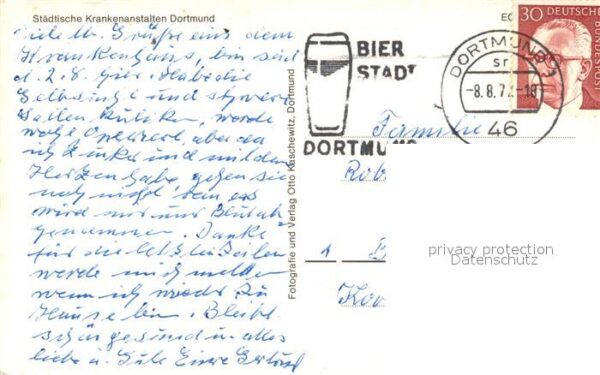 Städtische Krankenanstalten Dortmund
Viele lb. Grüße aus dem
Krankenhaus, bin seid
d. 2.8. hier. Habe die
und schwere
Gallenkoliken, werde
wohl Operiert, aber da
ich Zucker und mit dem
Herzen habe, gehen sie
noch nicht dran, es
wird nur Blut ab
genommen. Danke
für die lb. Zeilen
werde mich melden
wenn ich wieder zu
Hause bin. Bleibt
schön gesund u. alles
liebe u. Gute Eure Gertrud
Fotografie und Verlag Otto Kaschewitz, Dortmund
BIER
STADT
DORTMU
DORTMUND
sr
-8.8.7
46
30 DEUTSCHE
BUNDESPOST
Familie
Rob
1
Kov
privacy protection
Datenschutz